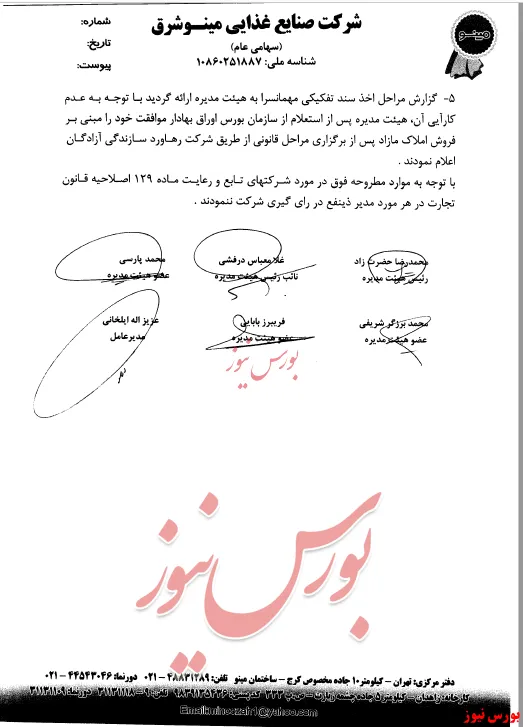 شرکت صنایع غذایی مینـوشرق
(سهامی عام)
شناسه ملی: ۱۰۸۶۰۲۵۱۸۸۷
شماره:
تاریخ:
پیوست:
مینو
۵- گزارش مراحل اخذ سند تفکیکی مهمانسرا به هیئت مدیره ارائه گردید با توجه به عدم
کارآیی آن، هیئت مدیره پس از استعلام از سازمان بورس اوراق بهادار موافقت خود را مبنی بر
فروش املاک مازاد پس از برگزاری مراحل قانونی از طریق شرکت رهاورد سازندگی آزادگان
اعلام نمودند .
با توجه به موارد مطروحه فوق در مورد شرکتهای تابع و رعایت ماده ۱۲۹ اصلاحیه قانون
تجارت در هر مورد مدیر ذینفع در رای گیری شرکت ننمودند .
محمدرضا حضرت زاد
رئیس هیئت مدیره
غلامعباس درفشی
نائب رئیس هیئت مدیره
محمد پارسی
عضو هیئت مدیره
محمد برزگر شریفی
عضو هیئت مدیره
فریبرز بابایی
عضو هیئت مدیره
عزیز اله ایلخانی
مدیرعامل
بورس نیوز
بورس نیوز
دفتر مرکزی: تهران – کیلومتر۱۰ جاده مخصوص کرج – ساختمان مینو تلفن: ۴۸۸۳۱۲۸۹ – ۰۲۱ دورنما: ۴۴۵۴۳۰۴۶ – ۰۲۱
کارخانه: زاهدان – کیلومتر۵ جاده چشمه زیارت – ص.پ ۳۳۳
بورس نیوز